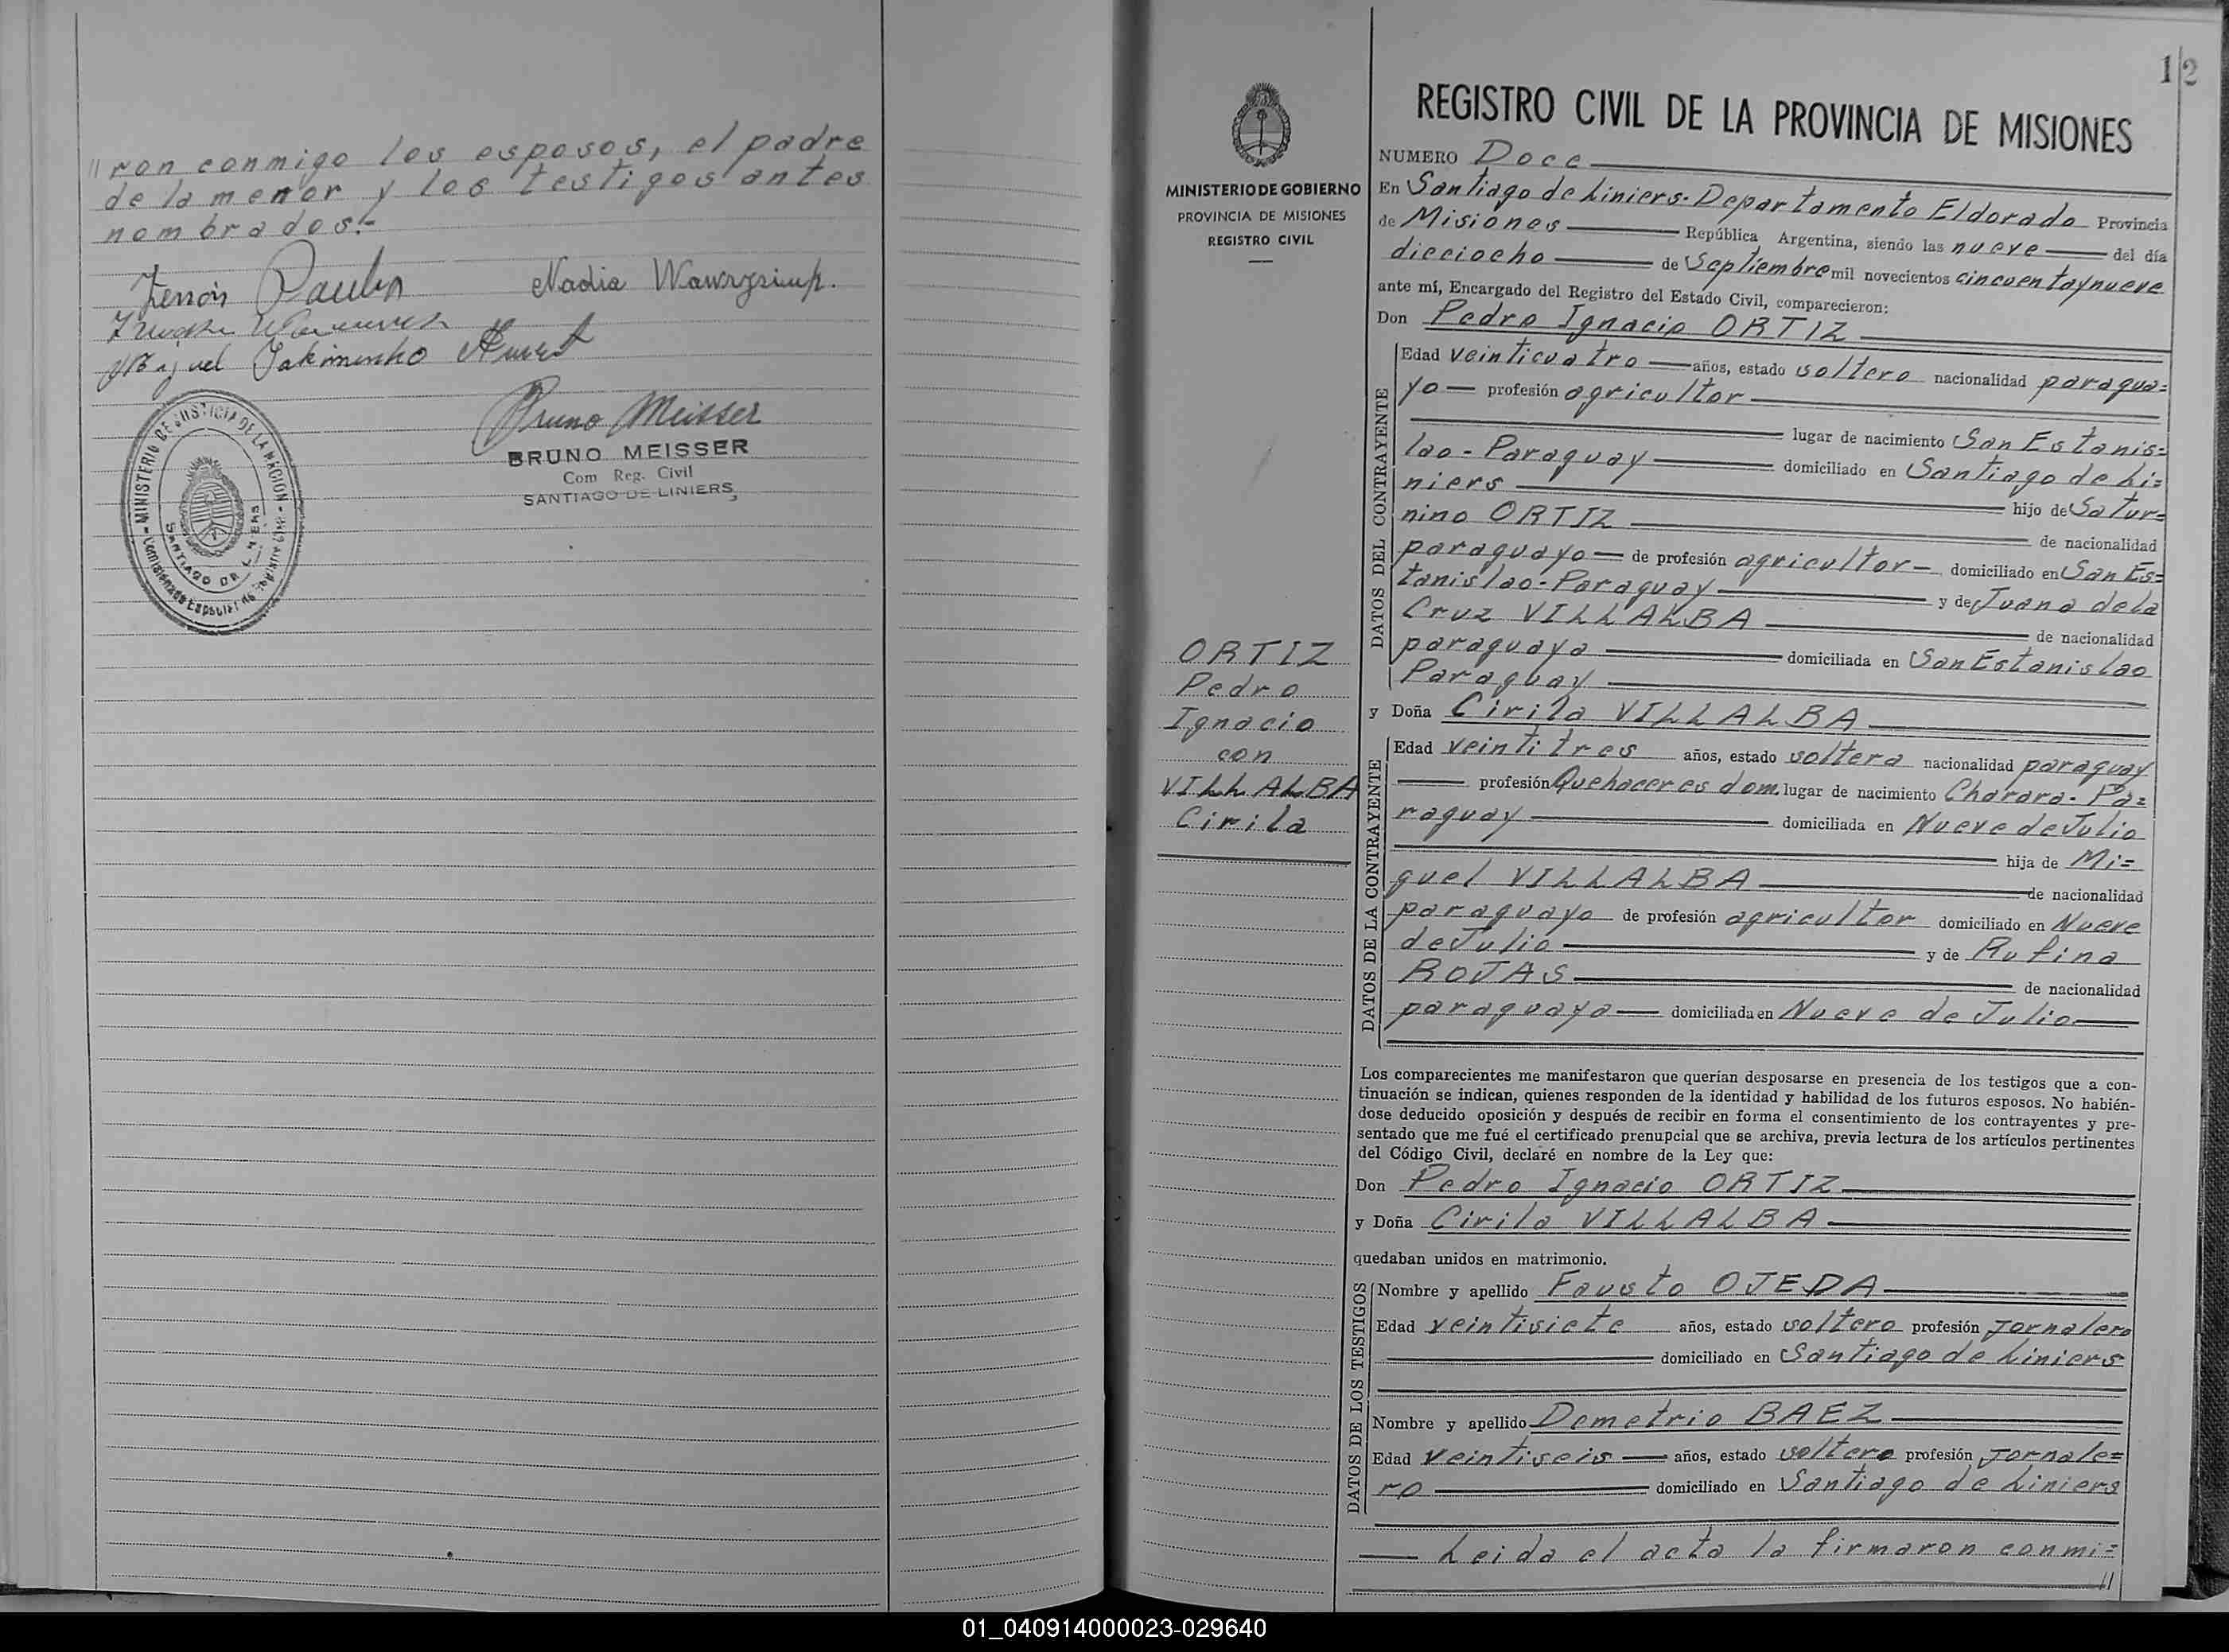 //ron conmigo los esposos, el padre
de la menor y los testigos antes
nombrados.-
Zenón Paulin
Nadia Wawrzsiuk.
Miguel Jakiminho
Bruno Meisser
BRUNO MEISSER
Com Reg. Civil
SANTIAGO DE LINIERS
MINISTERIO DE JUSTICIA DE LA NACIÓN
SANTIAGO DE LINIERS
12
MINISTERIO DE GOBIERNO
PROVINCIA DE MISIONES
REGISTRO CIVIL
ORTIZ
Pedro
Ignacio
con
VILLALBA
Cirila
REGISTRO CIVIL DE LA PROVINCIA DE MISIONES
NUMERO Doce
En Santiago de Liniers-Departamento Eldorado Provincia
de Misiones República Argentina, siendo las nueve del día
dieciocho de Septiembre mil novecientos cincuentaynueve
ante mí, Encargado del Registro del Estado Civil, comparecieron:
Don Pedro Ignacio ORTIZ
DATOS DEL CONTRAYENTE
Edad veinticuatro años, estado soltero nacionalidad paragua=
yo profesión agricultor
lugar de nacimiento San Estanis=
lao - Paraguay domiciliado en Santiago de Li=
niers hijo de Satur=
nino ORTIZ de nacionalidad
paraguayo de profesión agricultor domiciliado en San Es=
tanislao-Paraguay y de Juana de la
Cruz VILLALBA de nacionalidad
paraguaya domiciliada en San Estanislao
Paraguay
y Doña Cirila VILLALBA
DATOS DE LA CONTRAYENTE
Edad veintitres años, estado soltera nacionalidad paraguay
profesión Quehaceres dom. lugar de nacimiento Charara-Pa=
raguay domiciliada en Nueve de Julio
hija de Mi=
guel VILLALBA de nacionalidad
paraguayo de profesión agricultor domiciliado en Nueve
de Julio y de Rufina
ROJAS de nacionalidad
paraguaya domiciliada en Nueve de Julio
Los comparecientes me manifestaron que querían desposarse en presencia de los testigos que a con-
tinuación se indican, quienes responden de la identidad y habilidad de los futuros esposos. No habién-
dose deducido oposición y después de recibir en forma el consentimiento de los contrayentes y pre-
sentado que me fué el certificado prenupcial que se archiva, previa lectura de los artículos pertinentes
del Código Civil, declaré en nombre de la Ley que:
Don Pedro Ignacio ORTIZ
y Doña Cirila VILLALBA
quedaban unidos en matrimonio.
DATOS DE LOS TESTIGOS
Nombre y apellido Fausto OJEDA
Edad veintisiete años, estado soltero profesión Jornalero
domiciliado en Santiago de Liniers
Nombre y apellido Demetrio BAEZ
Edad veintiseis años, estado soltero profesión Jornale=
ro domiciliado en Santiago de Liniers
Leida el acta la firmaron conmi=
//
01_040914000023-029640